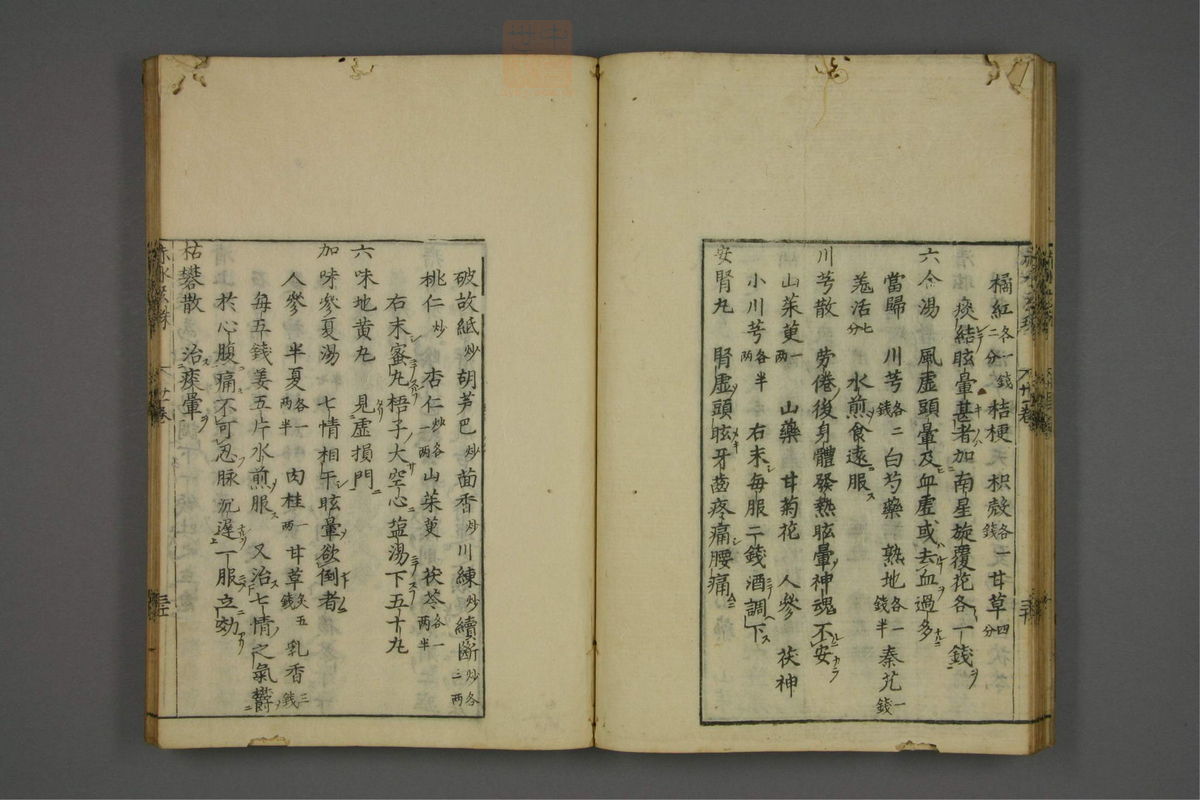 橘紅各一錢二分桔梗天枳殼各一錢甘草四分
痰結眩暈甚者加南星旋覆花各一錢
六合湯 風虛頭暈及血虛或去血過多
當歸 川芎各二錢白芍藥 熟地各一錢半秦艽一錢
羗活七分 水煎食遠服
川芎散 勞倦後身體發熱眩暈神魂不安
山茱萸一兩 山藥 甘菊花 人參 茯神
小川芎各半兩 右末每服二錢酒調下
安腎丸 腎虛頭眩牙齒疼痛腰痛
破故紙炒胡芦巴炒茴香炒川練炒續斷炒各二兩
桃仁炒 杏仁炒各一兩山茱萸 茯苓各一兩半
右末蜜丸梧子大空心盐湯下五十丸
六味地黄丸 見虛損門
加味參夏湯 七情相干眩暈欲倒者
人參 半夏各一兩半 肉桂一兩甘草炙五錢乳香三錢
每五錢姜五片水煎服 又治七情之氣欝
於心腹痛不可忍脉沉遲一服立効
枯礬散 治痰暈